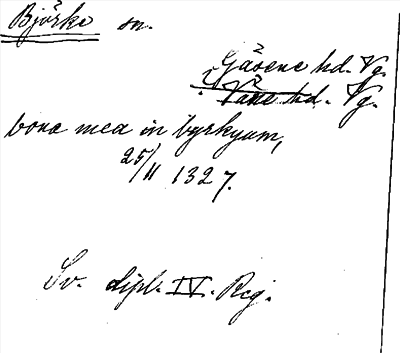 Björke sn.
Gäsene hd. Vg.
Väne hd. Vg.
bona mea in byrkyum,
25/11 1327.
Sv. dipl. IV. Reg.